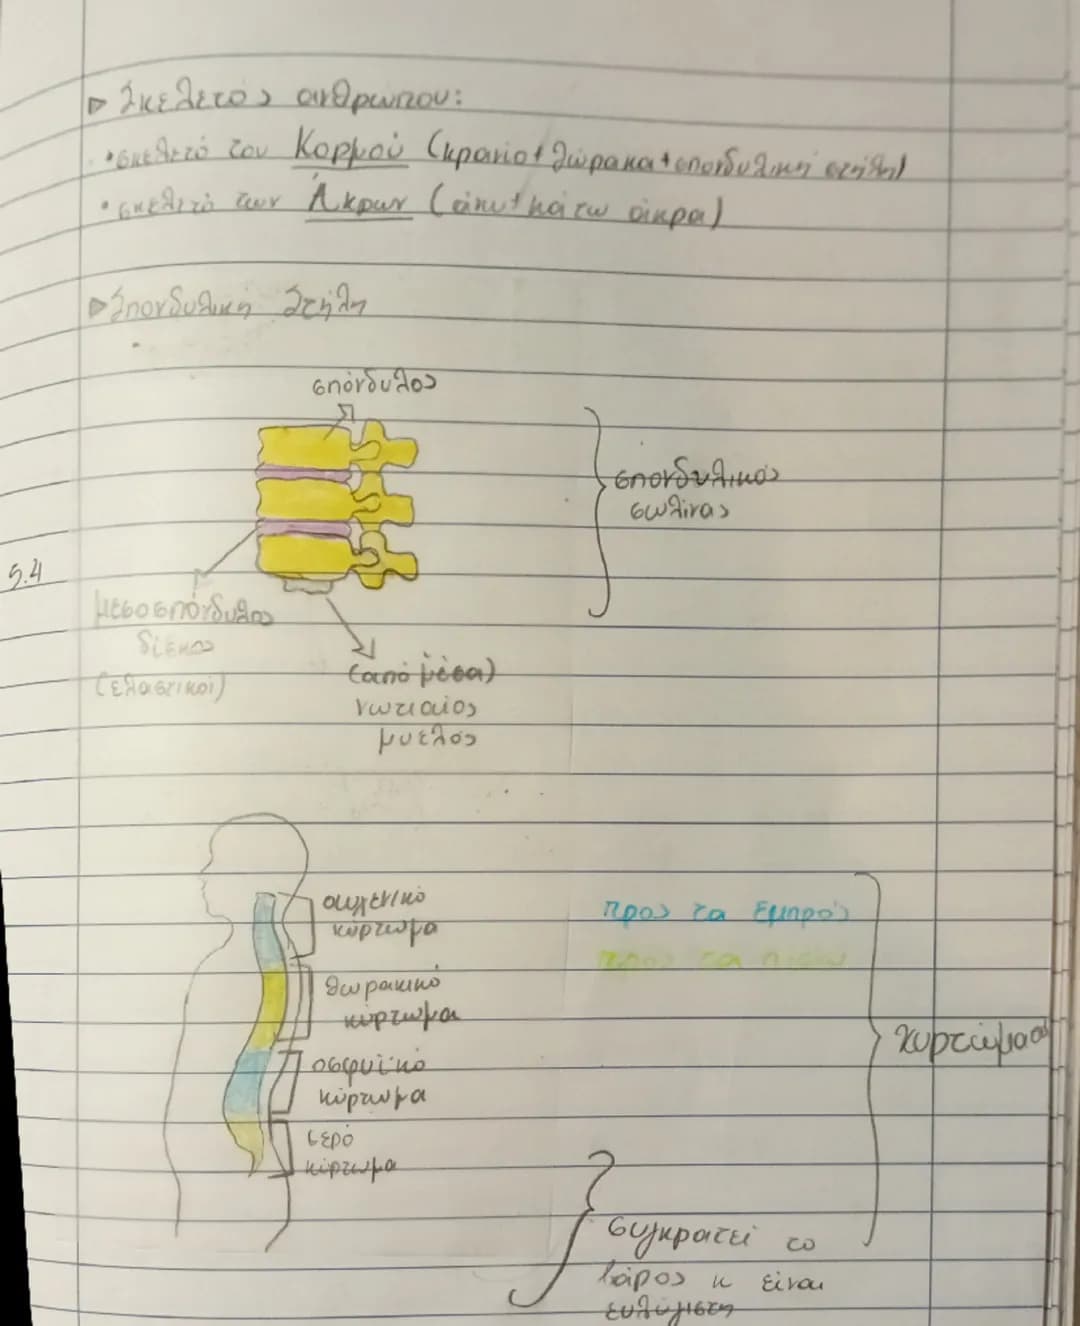 ▷ Σκελετός ανθρώπου:
• σκελετό του Κορμού (κρανίο + θώρακα + σπονδυλική στήλη)
• σκελετό των Άκρων (άνω + κάτω άκρα)
▷ Σπονδυλική Στήλη
σπόνδυλος
σπονδυλικός
σωλήνας
5.4
μεσοσπόνδυλος
δίσκος
(ελαστικοί)
(από μέσα)
νωτιαίος
μυελός
αυχενικό
κύρτωμα
προς τα εμπρός
προς τα πίσω
θωρακικό
κύρτωμα
κυρτώματα
οσφυϊκό
κύρτωμα
ιερό
κύρτωμα
συγκρατεί το
βάρος κ είναι
ευλύγιστη